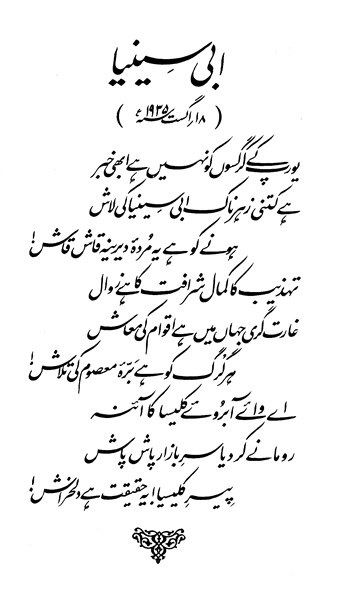 ابی سینیا
(۱۸؍ اگست ۱۹۳۵ء)
یورپ کے کرگسوں کو نہیں ہے ابھی خبر
ہے کتنی زہرناک ابی سینیا کی لاش
ہونے کو ہے یہ مُردۂ دیرینہ قاش قاش!
تہذیب کا کمال شرافت کا ہے زوال
غارت گری جہاں میں ہے اقوام کی معاش
ہر گُرگ کو ہے بَرّۂ معصوم کی تلاش!
اے وائے آبروئے کلیسا کا آئنہ
روما نے کر دیا سرِ بازار پاش پاش
پیرِ کلیسیا! یہ حقیقت ہے دلخراش!